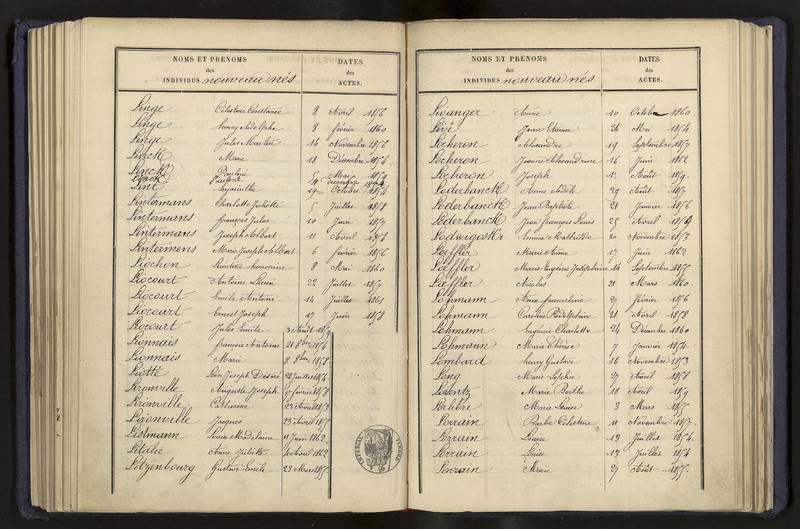 NOMS ET PRÉNOMS
des
INDIVIDUS nouveau nés
DATES
des
ACTES.
Linge Célestine Constance 8 Avril 1856
Linge henry Adolphe 8 février 1860
Linge Jules Martin 14 Novembre 1856
Linck Marie 18 Décembre 1856
Linck Pauline 5 Mai 1859
Linck
Lint hyacinthe Octobre 1854
Lintermans Charlotte Juliette 5 Juillet 1858
Lintermans françois Jules 10 Juin 1857
Lintermans Joseph Albert 11 Avril 1856
Lintermens Marie Joseph Albert 6 février 1856
Liochon Léontine honorine 8 Mai 1860
Liocourt Antoine Lucien 22 Juillet 1857
Liocourt Emile Antoine 14 Juillet 1861
Liocourt Ernest Joseph 17 Juin 1858
Liocourt Jules Emile 3 Août
Lionnais françois Antoine 21 8bre 1854
Lionnais Marie 8 8bre 1858
Liotte Léon Joseph Désiré 28 Juillet 1856
Lironville Auguste Joseph 17 février 1858
Lironville Catherine 23 Avril 1857
Lironville Jacques 23 Avril
Listmann Louise Madelaine 11 Juin 1862
Litalie Anne Juliette Avril 1862
Litzenbourg Gustave Emile 23 Mars
NOMS ET PRÉNOMS
des
INDIVIDUS nouveau nés
DATES
des
ACTES.
Livanger Anne 10 Octobre 1860
Livé Jean Etienne 26 Mai 1854
Locheron Alexandre 19 Septembre 1857
Locheron Jeanne Alexandrine 16 Juin 1862
Locheron Joseph 12 Août 1859
Loderbanck Anne Adèle 29 Août
Loderbanck Jean Baptiste 21 Janvier 1856
Loderbanck Jean françois Louis 25 Avril 1859
Lodwigoski Emma Mathilde 20 Novembre 1853
Loeffler Marie Anne 17 Juin 1862
Loeffler Marie Eugénie Joséphine 14 Septembre 1855
Loeffler Nicolas 21 Mars 1860
Lohmann Anne françoise 27 février 1856
Lohmann 21 Avril 1858
Lohmann Eugénie Charlotte 24 Décembre 1860
Lohmann Marie Thérèse 7 Janvier 1854
Lombard henry Gustave 16 Novembre 1853
Long Marie Sophie 27 Avril 1858
Lorentz Marie Berthe 18 Avril 1859
Marie Louise 3 Mars
Lorrain Barbe Célestine 11 Novembre 1857
Lorrain Louise 13 Juillet 1856
Lorrain Louise 13 Juillet 1856
Lorrain Marie 27 Août 1855